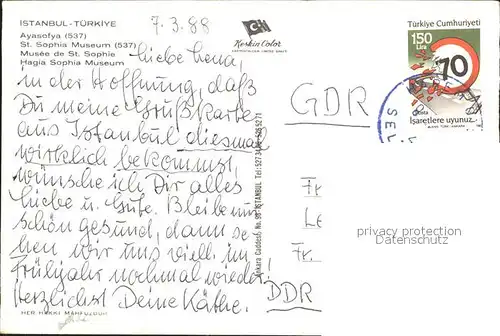 ISTANBUL - TÜRKİYE
Ayasofya (537)
St. Sophia Museum (537)
Musée de St. Sophie
Hagia Sophia Museum
7.3.88
Keskin Color
Türkiye Cumhuriyeti
150
Lira
70
İşaretlere uyunuz.
SEL
Liebe Lena,
in der Hoffnung, daß
Du meine Grußkarte
aus Istanbul diesmal
wirklich bekommst,
wünsche ich Dir alles
Liebe u. Gute. Bleibe nur
schön gesund, dann se-
hen wir uns viell. im
Frühjahr nochmal wieder.
Herzlichst Deine Käthe.
HER HAKKI MAHFUZDUR
Ankara Caddesi No. 98 İSTANBUL Tel:
GDR
Fr.
Le
Fr.
DDR
privacy protection
Datenschutz